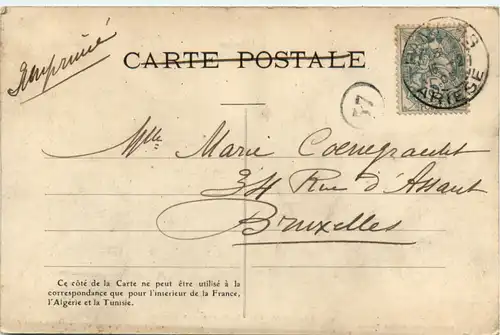 Imprimé
CARTE POSTALE
ARIEGE
37
Mlle Marie Coenegracht
34 Rue d'Assaut
Bruxelles
Ce côté de la Carte ne peut être utilisé à la
correspondance que pour l'interieur de la France,
l'Algérie et la Tunisie.